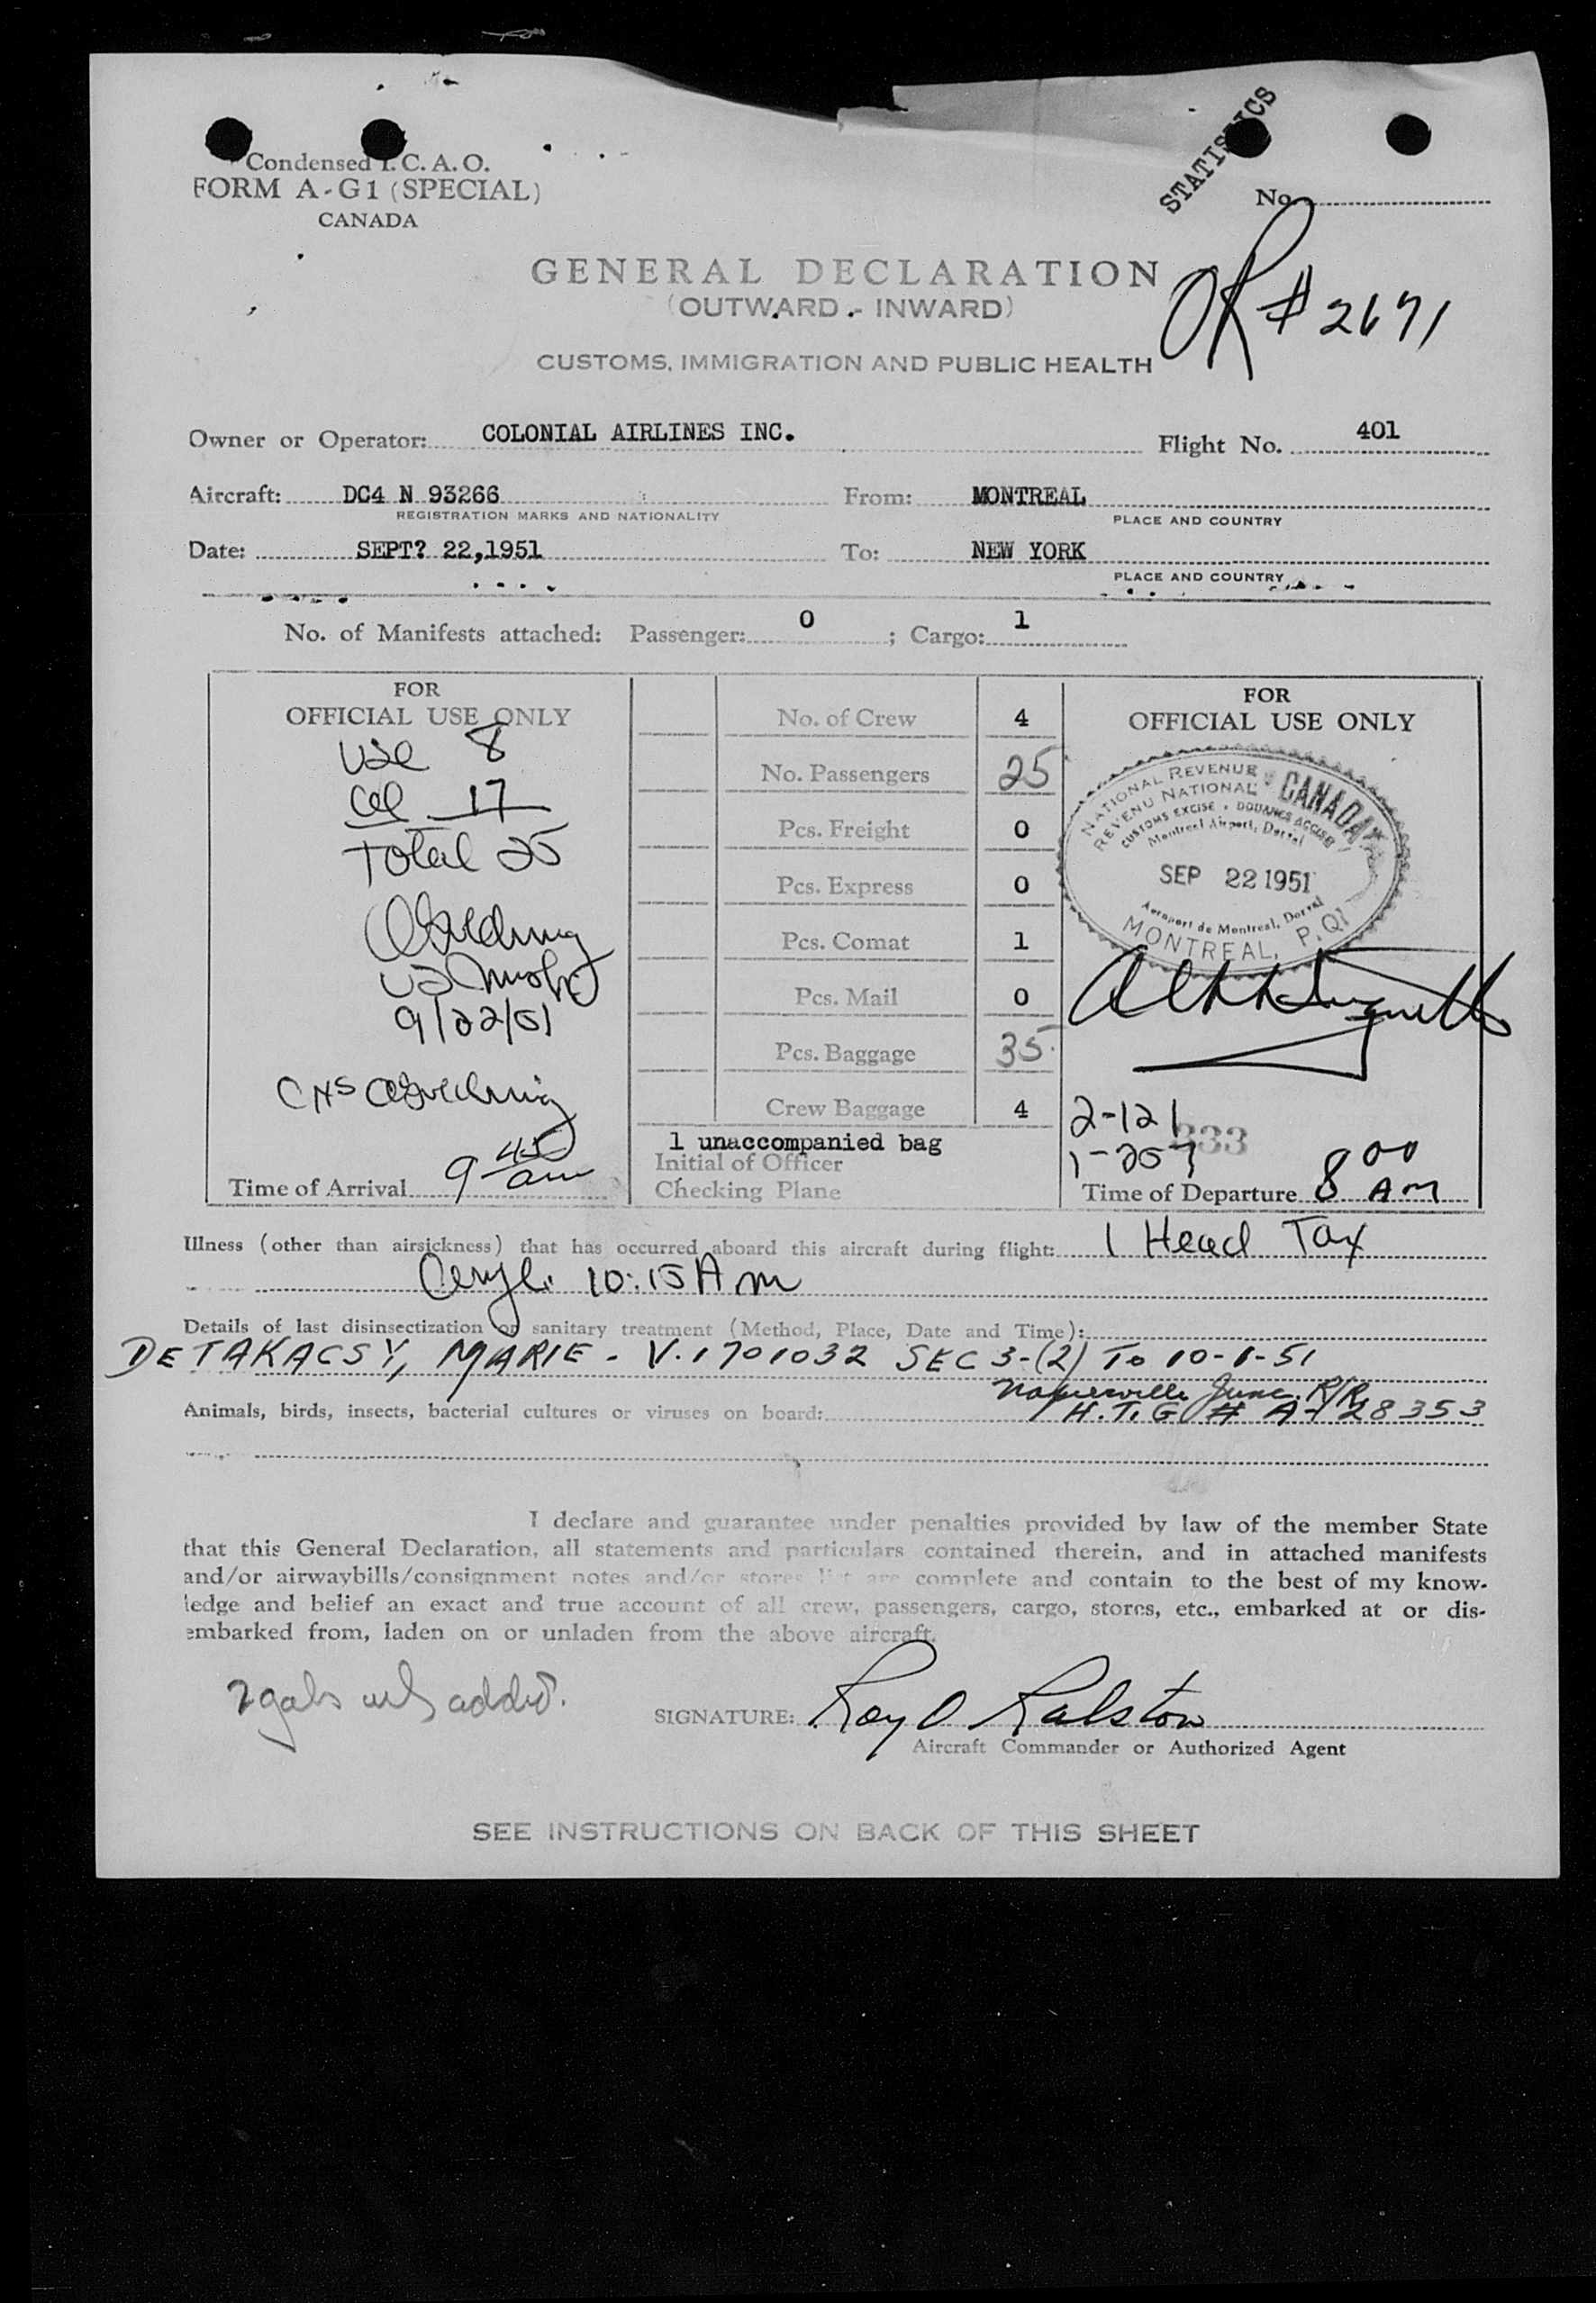 STATISTICS
Condensed I. C. A. O.
FORM A-G1 (SPECIAL)
CANADA
No.
GENERAL DECLARATION
(OUTWARD - INWARD)
OR # 2671
CUSTOMS, IMMIGRATION AND PUBLIC HEALTH
Owner or Operator: COLONIAL AIRLINES INC. Flight No. 401
Aircraft: DC4 N 93266 From: MONTREAL
REGISTRATION MARKS AND NATIONALITY PLACE AND COUNTRY
Date: SEPT? 22,1951 To: NEW YORK
PLACE AND COUNTRY
No. of Manifests attached: Passenger: 0 ; Cargo: 1
FOR
OFFICIAL USE ONLY
8
17
Total 25
9/22/51
Time of Arrival 9 45 am
No. of Crew 4
No. Passengers 25
Pcs. Freight 0
Pcs. Express 0
Pcs. Comat 1
Pcs. Mail 0
Pcs. Baggage 35
Crew Baggage 4
1 unaccompanied bag
Initial of Officer
Checking Plane
FOR
OFFICIAL USE ONLY
NATIONAL REVENUE CANADA
REVENU NATIONAL
CUSTOMS EXCISE • DOUANES ACCISE
Montreal Airport, Dorval
SEP 22 1951
Aeroport de Montreal, Dorval
MONTREAL, P.Q.
2-121
333
1-257
Time of Departure 8 00 AM
Illness (other than airsickness) that has occurred aboard this aircraft during flight: 1 Head Tax
10:15 Am
Details of last disinsectization or sanitary treatment (Method, Place, Date and Time):
DE TAKACSY, MARIE - V.1701032 SEC 3-(2) To 10-1-51
Junc. R/R
Animals, birds, insects, bacterial cultures or viruses on board: H.T.G # A-128353
I declare and guarantee under penalties provided by law of the member State
that this General Declaration, all statements and particulars contained therein, and in attached manifests
and/or airwaybills/consignment notes and/or stores list are complete and contain to the best of my know-
ledge and belief an exact and true account of all crew, passengers, cargo, stores, etc., embarked at or dis-
embarked from, laden on or unladen from the above aircraft.
2 gals added.
SIGNATURE: Roy O Ralston
Aircraft Commander or Authorized Agent
SEE INSTRUCTIONS ON BACK OF THIS SHEET